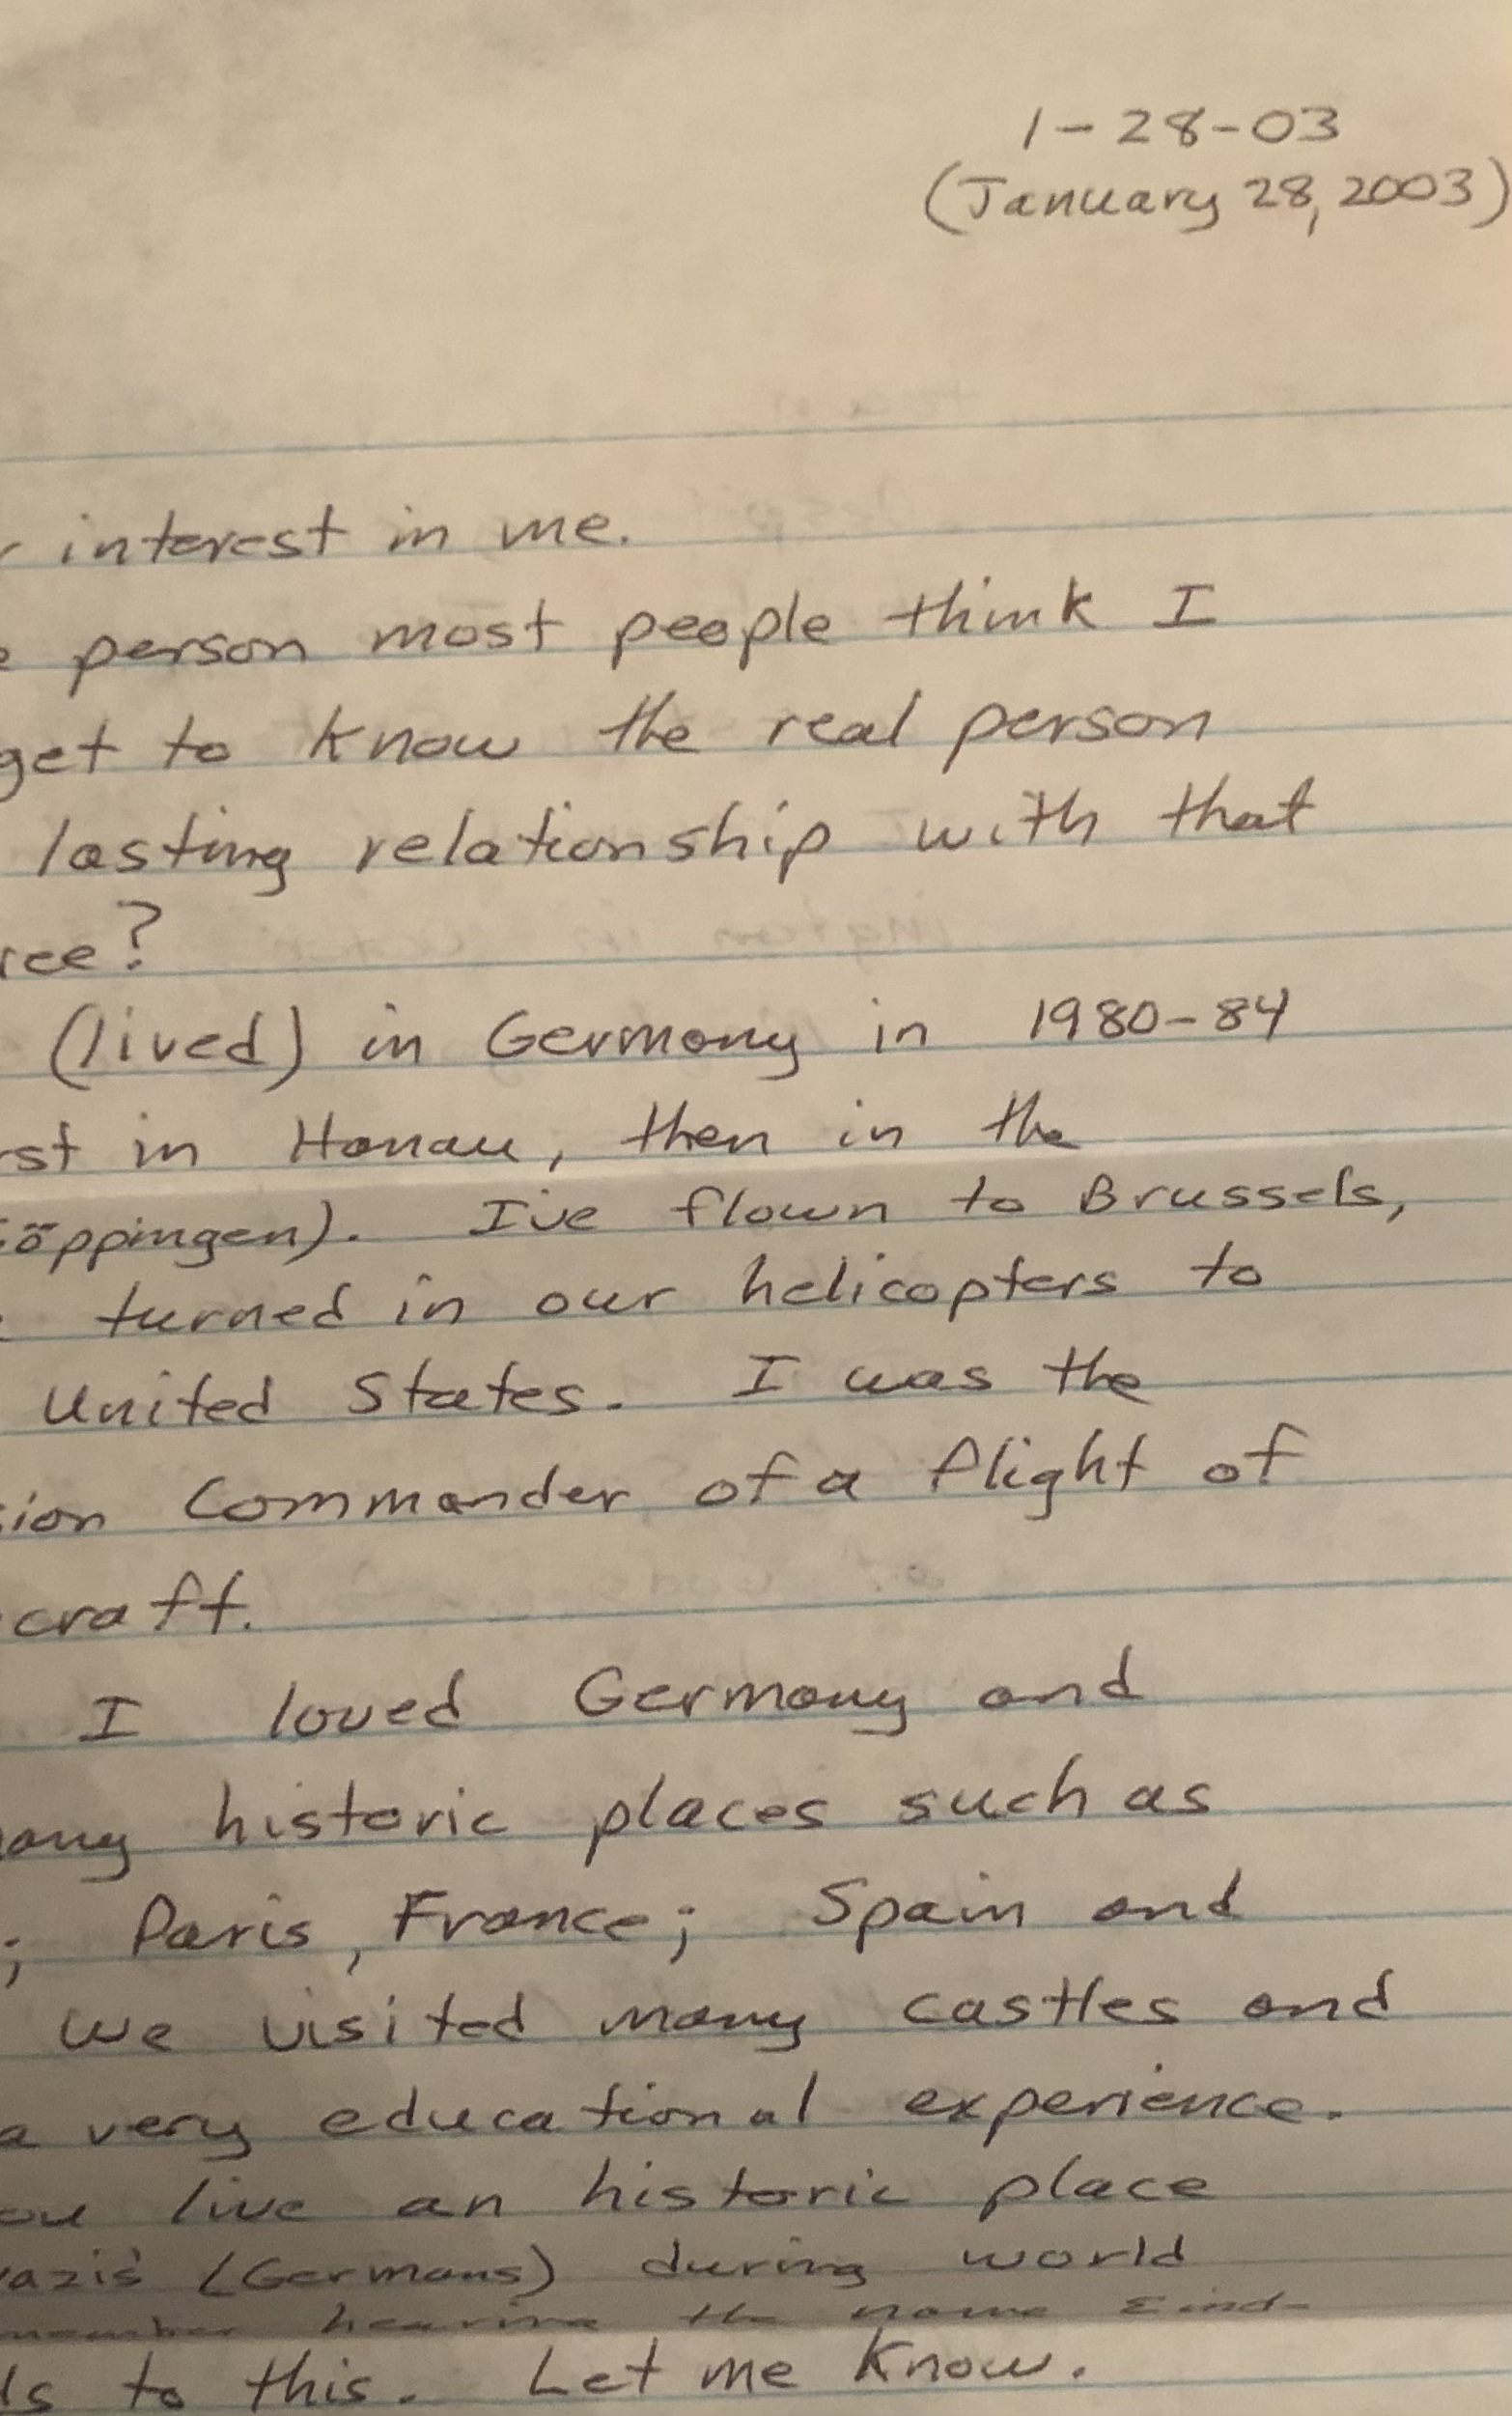 1-28-03
(January 28, 2003)
interest in me.
person most people think I
get to know the real person
lasting relationship with that
ree?
(lived) in Germany in 1980-84
st in Hanau, then in the
öppingen). I've flown to Brussels,
turned in our helicopters to
United States. I was the
ion Commander of a flight of
craft.
I loved Germany and
any historic places such as
; Paris, France; Spain and
we visited many castles and
a very educational experience.
ou live an historic place
azis (Germans) during world
member hearing the name Eind-
ls to this. Let me know.